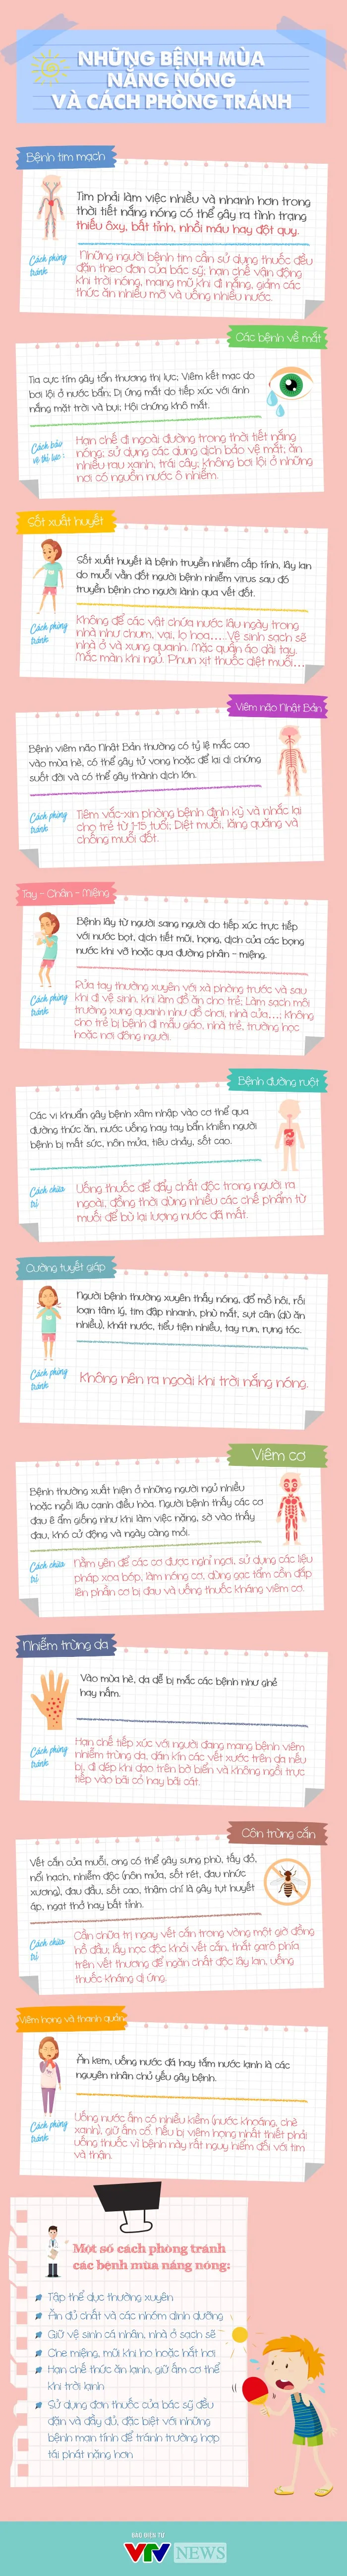 NHỮNG BỆNH MÙA
NẮNG NÓNG
VÀ CÁCH PHÒNG TRÁNH
Bệnh tim mạch
Tim phải làm việc nhiều và nhanh hơn trong
thời tiết nắng nóng có thể gây ra tình trạng
thiếu ôxy, bất tỉnh, nhồi máu hay đột quỵ.
Cách phòng
tránh
Những người bệnh tim cần sử dụng thuốc đều
đặn theo đơn của bác sỹ; hạn chế vận động
khi trời nóng, mang mũ khi đi nắng, giảm các
thức ăn nhiều mỡ và uống nhiều nước.
Các bệnh về mắt
Tia cực tím gây tổn thương thị lực; Viêm kết mạc do
bơi lội ở nước bẩn; Dị ứng mắt do tiếp xúc với ánh
nắng mặt trời và bụi; Hội chứng khô mắt.
Cách bảo
vệ thị lực:
Hạn chế đi ngoài đường trong thời tiết nắng
nóng; sử dụng các dung dịch bảo vệ mắt; ăn
nhiều rau xanh, trái cây; không bơi lội ở những
nơi có nguồn nước ô nhiễm.
Sốt xuất huyết
Sốt xuất huyết là bệnh truyền nhiễm cấp tính, lây lan
do muỗi vằn đốt người bệnh nhiễm virus sau đó
truyền bệnh cho người lành qua vết đốt.
Cách phòng
tránh
Không để các vật chứa nước lâu ngày trong
nhà như chum, vại, lọ hoa,.... Vệ sinh sạch sẽ
nhà ở và xung quanh. Mặc quần áo dài tay.
Mắc màn khi ngủ. Phun xịt thuốc diệt muỗi...
Viêm não Nhật Bản
Bệnh viêm não Nhật Bản thường có tỷ lệ mắc cao
vào mùa hè, có thể gây tử vong hoặc để lại di chứng
suốt đời và có thể gây thành dịch lớn.
Cách phòng
tránh
Tiêm vắc-xin phòng bệnh định kỳ và nhắc lại
cho trẻ từ 1-15 tuổi; Diệt muỗi, lăng quăng và
chống muỗi đốt.
Tay - Chân - Miệng
Bệnh lây từ người sang người do tiếp xúc trực tiếp
với nước bọt, dịch tiết mũi, họng, dịch của các bọng
nước khi vỡ hoặc qua đường phân - miệng.
Cách phòng
tránh
Rửa tay thường xuyên với xà phòng trước và sau
khi đi vệ sinh, khi làm đồ ăn cho trẻ; Làm sạch môi
trường xung quanh như đồ chơi, nhà cửa...; Không
cho trẻ bị bệnh đi mẫu giáo, nhà trẻ, trường học
hoặc nơi đông người.
Bệnh đường ruột
Các vi khuẩn gây bệnh xâm nhập vào cơ thể qua
đường thức ăn, nước uống hay tay bẩn khiến người
bệnh bị mất sức, nôn mửa, tiêu chảy, sốt cao.
Cách chữa
trị
Uống thuốc để đẩy chất độc trong người ra
ngoài, đồng thời dùng nhiều các chế phẩm từ
muối để bù lại lượng nước đã mất.
Cường tuyết giáp
Người bệnh thường xuyên thấy nóng, đổ mồ hôi, rối
loạn tâm lý, tim đập nhanh, phù mắt, sụt cân (dù ăn
nhiều), khát nước, tiểu tiện nhiều, tay run, rụng tóc.
Cách phòng
tránh
Không nên ra ngoài khi trời nắng nóng.
Viêm cơ
Bệnh thường xuất hiện ở những người ngủ nhiều
hoặc ngồi lâu cạnh điều hòa. Người bệnh thấy các cơ
đau ê ẩm giống như khi làm việc nặng, sờ vào thấy
đau, khó cử động và ngày càng mỏi.
Cách chữa
trị
Nằm yên để các cơ được nghỉ ngơi, sử dụng các liệu
pháp xoa bóp, làm nóng cơ, dùng gạc tẩm cồn đắp
lên phần cơ bị đau và uống thuốc kháng viêm cơ.
Nhiễm trùng da
Vào mùa hè, da dễ bị mắc các bệnh như ghẻ
hay nấm.
Cách phòng
tránh
Hạn chế tiếp xúc với người đang mang bệnh viêm
nhiễm trùng da, dán kín các vết xước trên da nếu
bị, đi dép khi dạo trên bờ biển và không ngồi trực
tiếp vào bãi cỏ hay bãi cát.
Côn trùng cắn
Vết cắn của muỗi, ong có thể gây sưng phù, tấy đỏ,
nổi hạch, nhiễm độc (nôn mửa, sốt rét, đau nhức
xương), đau đầu, sốt cao, thậm chí là gây tụt huyết
áp, ngạt thở hay bất tỉnh.
Cách chữa
trị
Cần chữa trị ngay vết cắn trong vòng một giờ đồng
hồ đầu; lấy nọc độc khỏi vết cắn, thắt garô phía
trên vết thương để ngăn chất độc lây lan, uống
thuốc kháng dị ứng.
Viêm họng và thanh quản
Ăn kem, uống nước đá hay tắm nước lạnh là các
nguyên nhân chủ yếu gây bệnh.
Cách phòng
tránh
Uống nước ấm có nhiều kiềm (nước khoáng, chè
xanh), giữ ấm cổ. Nếu bị viêm họng nhất thiết phải
uống thuốc vì bệnh này rất nguy hiểm đối với tim
và thận.
Một số cách phòng tránh
các bệnh mùa nắng nóng:
Tập thể dục thường xuyên
Ăn đủ chất và các nhóm dinh dưỡng
Giữ vệ sinh cá nhân, nhà ở sạch sẽ
Che miệng, mũi khi ho hoặc hắt hơi
Hạn chế thức ăn lạnh, giữ ấm cơ thể
khi trời lạnh
Sử dụng đơn thuốc của bác sỹ đều
đặn và đầy đủ, đặc biệt với những
bệnh mạn tính để tránh trường hợp
tái phát nặng hơn
BÁO ĐIỆN TỬ
VTV NEWS